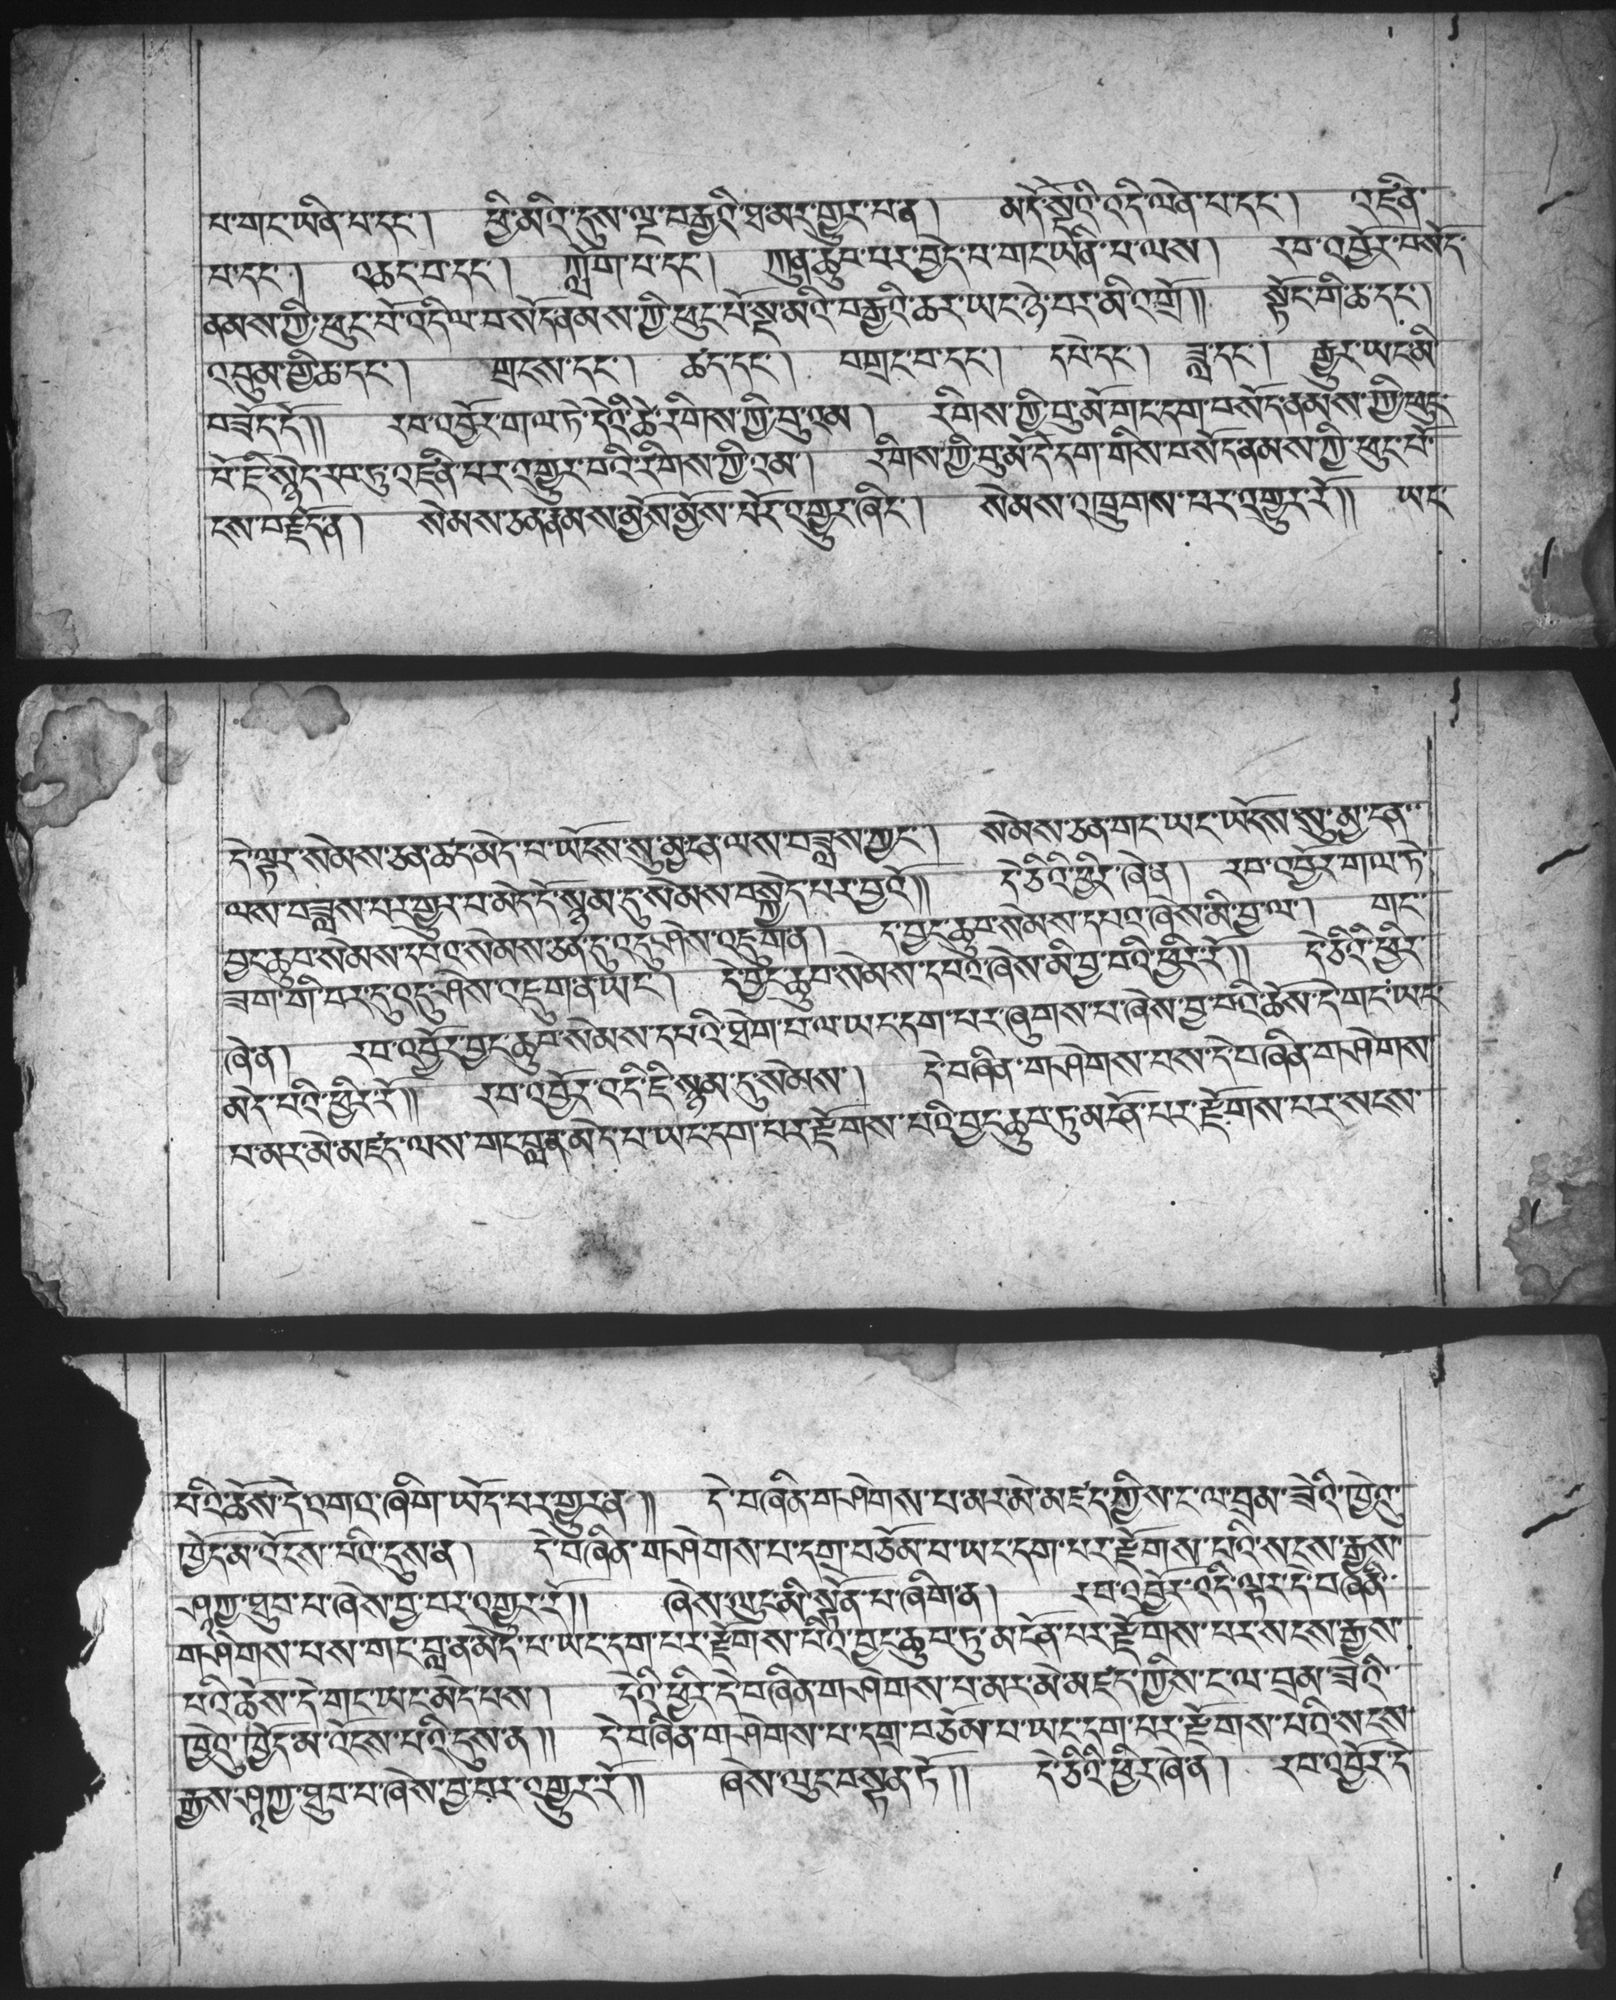 པ་གང་ཡིན་པ་དང་། ཕྱི་མའི་དུས་ལྔ་བརྒྱའི་ཐ་མར་གྱུར་པ་ན། མདོ་སྡེའི་འདི་ལེན་པ་དང་། འཛིན་
པ་དང་། འཆང་བ་དང་། ཀློག་པ་དང་། ཀུན་ཆུབ་པར་བྱེད་པ་གང་ཡིན་པ་ལས། རབ་འབྱོར་བསོད་
ནམས་ཀྱི་ཕུང་པོ་འདི་ལ་བསོད་ནམས་ཀྱི་ཕུང་པོ་སྔ་མའི་བརྒྱའི་ཆར་ཡང་ཉེ་བར་མི་འགྲོ།། སྟོང་གི་ཆ་དང་།
འབུམ་གྱི་ཆ་དང་། གྲངས་དང་། ཆ་དང་། བགྲང་བ་དང་། དཔེ་དང་། ཟླ་དང་། རྒྱུར་ཡང་མི་
བཟོད་དོ།། རབ་འབྱོར་གལ་ཏེ་དེའི་ཚེ་རིགས་ཀྱི་བུ་འམ། རིགས་ཀྱི་བུ་མོ་གང་དག་བསོད་ནམས་ཀྱི་ཕུང་
པོ་ཇི་སྙེད་རབ་ཏུ་འཛིན་པར་འགྱུར་བའི་རིགས་ཀྱི་འམ། རིགས་ཀྱི་བུ་མོ་དེ་དག་གིས་བསོད་ནམས་ཀྱི་ཕུང་པོ་
ངས་བརྗོད་ན། སེམས་ཅན་རྣམས་མྱོས་མྱོས་པོར་འགྱུར་ཞིང་། སེམས་འཁྲུགས་པར་འགྱུར་རོ།། ཡང་
དེ་ལྟར་སེམས་ཅན་ཚད་མེད་པ་ཡོངས་སུ་མྱ་ངན་ལས་བཟླས་ཀྱང་། སེམས་ཅན་གང་ཡང་ཡོངས་སུ་མྱ་ངན་
ལས་བཟླས་པར་གྱུར་པ་མེད་དོ་སྙམ་དུ་སེམས་བསྐྱེད་པར་བྱའོ།། དེ་ཅིའི་ཕྱིར་ཞེ་ན། རབ་འབྱོར་གལ་ཏེ་
བྱང་ཆུབ་སེམས་དཔའ་སེམས་ཅན་དུ་འདུ་ཤེས་འཇུག་ན། དེ་བྱང་ཆུབ་སེམས་དཔའ་ཞེས་མི་བྱ་ལ། གང་
ཟག་གི་བར་དུ་འདུ་ཤེས་འཇུག་ན་ཡང་། དེ་བྱང་ཆུབ་སེམས་དཔའ་ཞེས་མི་བྱ་བའི་ཕྱིར་རོ།། དེ་ཅིའི་ཕྱིར་
ཞེ་ན། རབ་འབྱོར་བྱང་ཆུབ་སེམས་དཔའི་ཐེག་པ་ལ་ཡང་དག་པར་ཞུགས་པ་ཞེས་བྱ་བའི་ཆོས་དེ་གང་ཡང་
མེད་པའི་ཕྱིར་རོ།། རབ་འབྱོར་འདི་ཇི་སྙམ་དུ་སེམས། དེ་བཞིན་གཤེགས་པས་དེ་བཞིན་གཤེགས་
པ་མར་མེ་མཛད་ལས་གང་བླན་མེད་པ་ཡང་དག་པར་རྫོགས་པའི་བྱང་ཆུབ་ཏུ་མངོན་པར་རྫོགས་པར་སངས་
པའི་ཆོས་དེ་འགའ་ཞིག་ཡོད་པར་གྱུར་ན།། དེ་བཞིན་གཤེགས་པ་མར་མེ་མཛད་ཀྱིས་ང་ལ་བྲམ་ཟེའི་ཁྱེའུ་
ཁྱོད་མ་འོངས་པའི་དུས་ན། དེ་བཞིན་གཤེགས་པ་དགྲ་བཅོམ་པ་ཡང་དག་པར་རྫོགས་པའི་སངས་རྒྱས་
ཤཱཀྱ་ཐུབ་པ་ཞེས་བྱ་བར་འགྱུར་རོ།། ཞེས་ལུང་མི་སྟོན་པ་ཞིག་ན། རབ་འབྱོར་འདི་ལྟར་དེ་བཞིན་
གཤེགས་པས་གང་བླན་མེད་པ་ཡང་དག་པར་རྫོགས་པའི་བྱང་ཆུབ་ཏུ་མངོན་པར་རྫོགས་པར་སངས་རྒྱས་
པའི་ཆོས་དེ་གང་ཡང་མེད་པས། དེའི་ཕྱིར་དེ་བཞིན་གཤེགས་པ་མར་མེ་མཛད་ཀྱིས་ང་ལ་བྲམ་ཟེའི་
ཁྱེའུ་ཁྱོད་མ་འོངས་པའི་དུས་ན།། དེ་བཞིན་གཤེགས་པ་དགྲ་བཅོམ་པ་ཡང་དག་པར་རྫོགས་པའི་སངས་
རྒྱས་ཤཱཀྱ་ཐུབ་པ་ཞེས་བྱ་བར་འགྱུར་རོ།། ཞེས་ལུང་བསྟན་ཏོ།། དེ་ཅིའི་ཕྱིར་ཞེ་ན། རབ་འབྱོར་དེ་